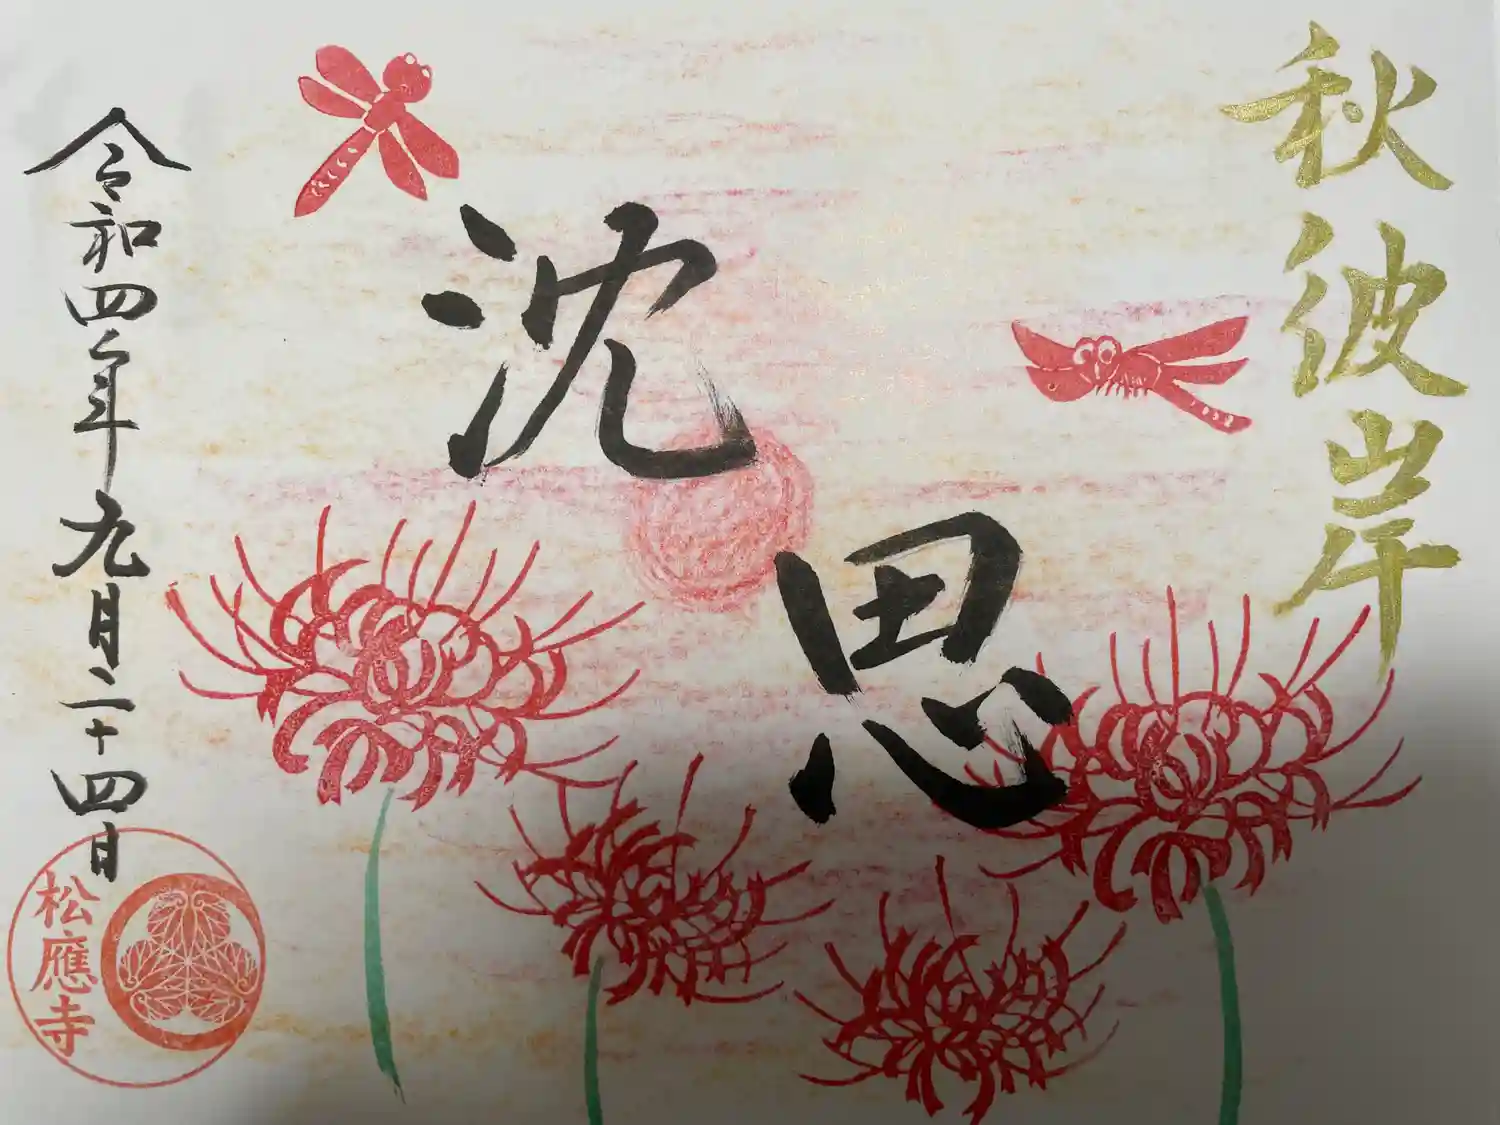 秋彼岸
沈思
令和四年九月二十四日
松應寺